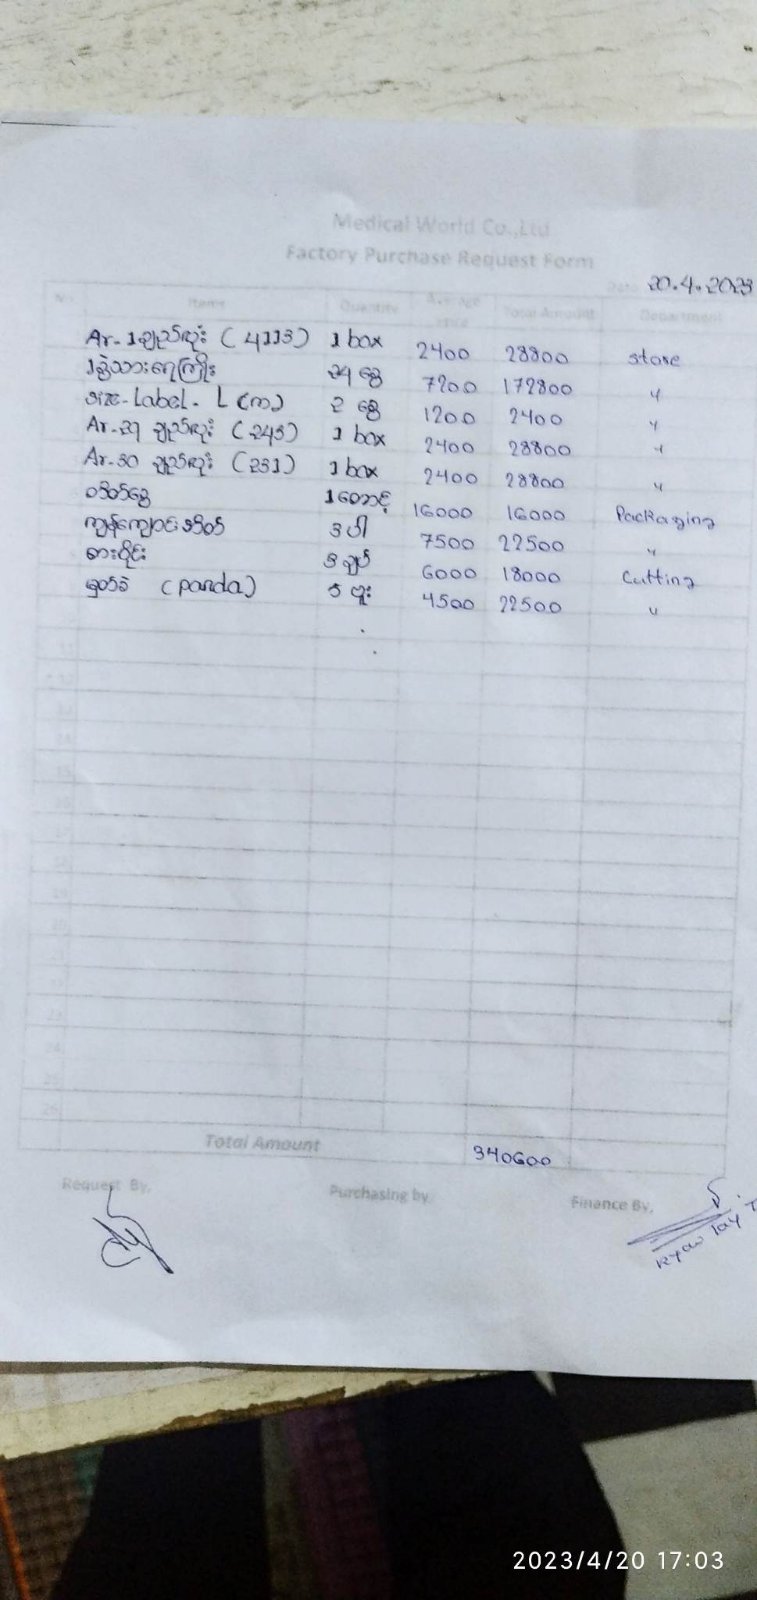 Medical World Co.,Ltd
Factory Purchase Request Form
Date 20.4.2023
No Items Quantity Average Price Total Amount Department
Ar-1 ချည်လုံး (4113) 1 box 2400 28800 store
၁နဲ့သားရေကြိုး 24 ခွေ 7200 172800 "
size-Label-L (က) 2 ခွေ 1200 2400 "
Ar-29 ချည်လုံး (243) 1 box 2400 28800 "
Ar-30 ချည်လုံး (231) 1 box 2400 28800 "
1 တောင့် 16000 16000 Packaging
3 ပါ 7500 22500 "
စားပိုင်း 3 ချပ် 6000 18000 Cutting
(panda) 5 ဗူး 4500 22500 "
11
12
13
14
15
16
17
18
19
20
21
22
23
24
25
26
Total Amount 340600
Request By, Purchasing by Finance By,
Kyaw Zay
2023/4/20 17:03